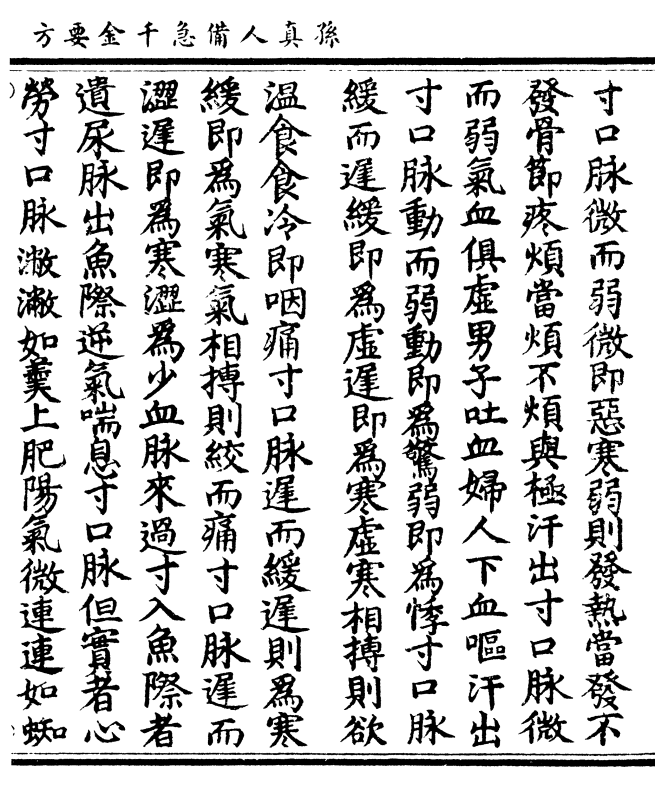 孫真人備急千金要方
寸口脉微而弱微即惡寒弱則發熱當發不
發骨節疼煩當煩不煩與極汗出寸口脉微
而弱氣血俱虛男子吐血婦人下血嘔汗出
寸口脉動而弱動即為驚弱即為悸寸口脉
緩而遲緩即為虛遲即為寒虛寒相摶則欲
温食食冷即咽痛寸口脉遲而緩遲則為寒
緩即為氣寒氣相摶則絞而痛寸口脉遲而
澀遲即為寒澀為少血脉來過寸入魚際者
遺尿脉出魚際逆氣喘息寸口脉但實者心
勞寸口脉潎潎如羹上肥陽氣微連連如蜘